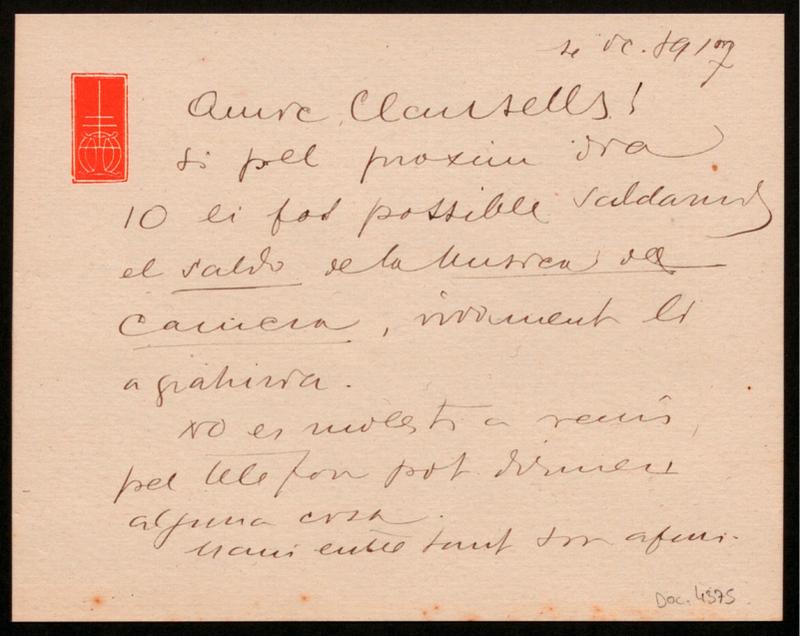 Amic Clausells!
si pel proxim dia
10 li fos possible saldarnos
el saldo de la Musica de
Camera, vivament li
agrahiria.
No es molesti a venir,
pel telefon pot dirmen
alguna cosa.
Mani entre tant son afm.
Doc. 4575